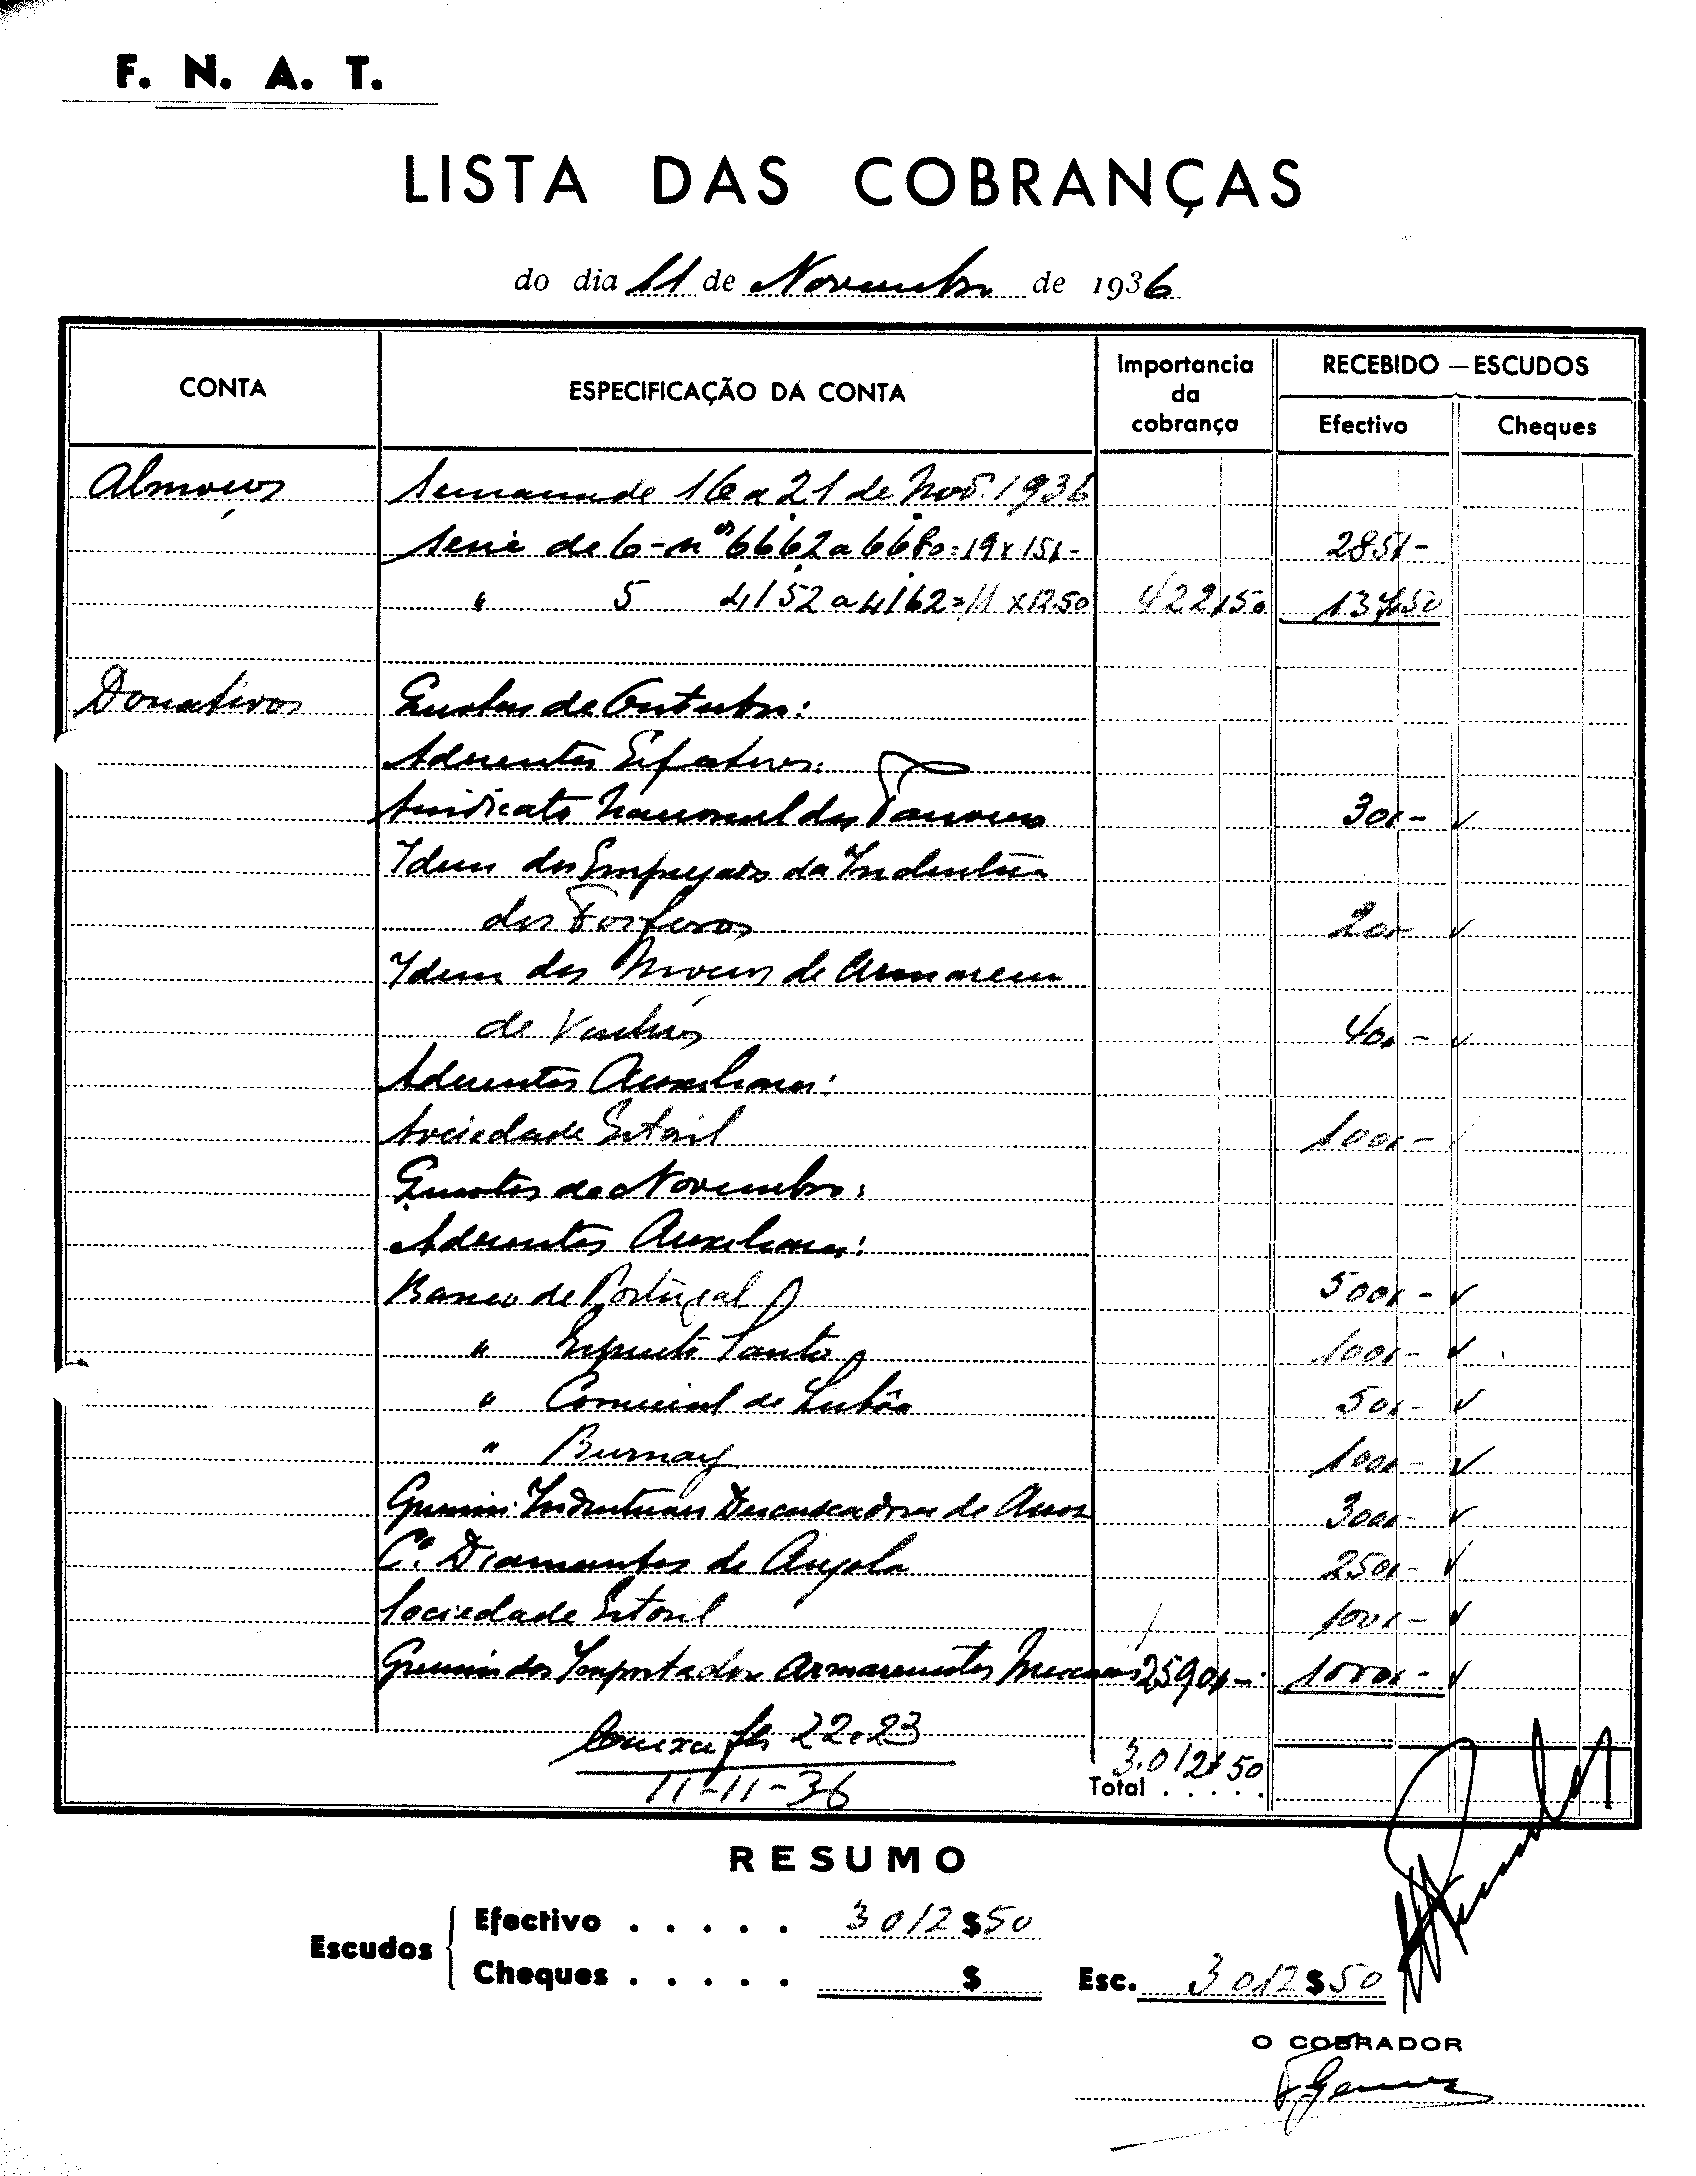 F. N. A. T.
LISTA DAS COBRANÇAS
do dia 11 de Novembro de 1936
CONTA
ESPECIFICAÇÃO DA CONTA
Importancia da cobrança
RECEBIDO — ESCUDOS
Efectivo
Cheques
Almoços Semana de 16 a 21 de Novº. 1936
Serie de 6 - nºs 6662 a 6680 = 19 x 15$- 285$-
" 5 4152 a 4162 = 11 x 12.50 422$50 137$50
Donativos Quotas de Outubro:
Aderentes Efectivos:
Sindicato Nacional dos Tanoeiros 30$- ✓
Idem dos Empregados da Industria
dos Fosforos 20$- ✓
Idem dos Moços de Armazem
de Vinhos 40$- ✓
Aderentes Auxiliares:
Sociedade Estoril 100$-
Quotas de Novembro:
Aderentes Auxiliares:
Banco de Portugal 500$- ✓
" Espirito Santo 100$- ✓
" Comercial de Lisbôa 50$- ✓
" Burnay 100$- ✓
Gremio Industriais Descascadores de Arroz 300$- ✓
Cª. Diamantes de Angola 250$- ✓
Sociedade Estoril 100$- ✓
Gremio dos Importador Armazenistas Mercearia 2590$- 1000$- ✓
Caixa fls 22.23
11-11-36
3.012$50
Total . . . . .
RESUMO
Escudos
Efectivo . . . . . 3012$50
Cheques . . . . . $
Esc. 3012$50
O COBRADOR